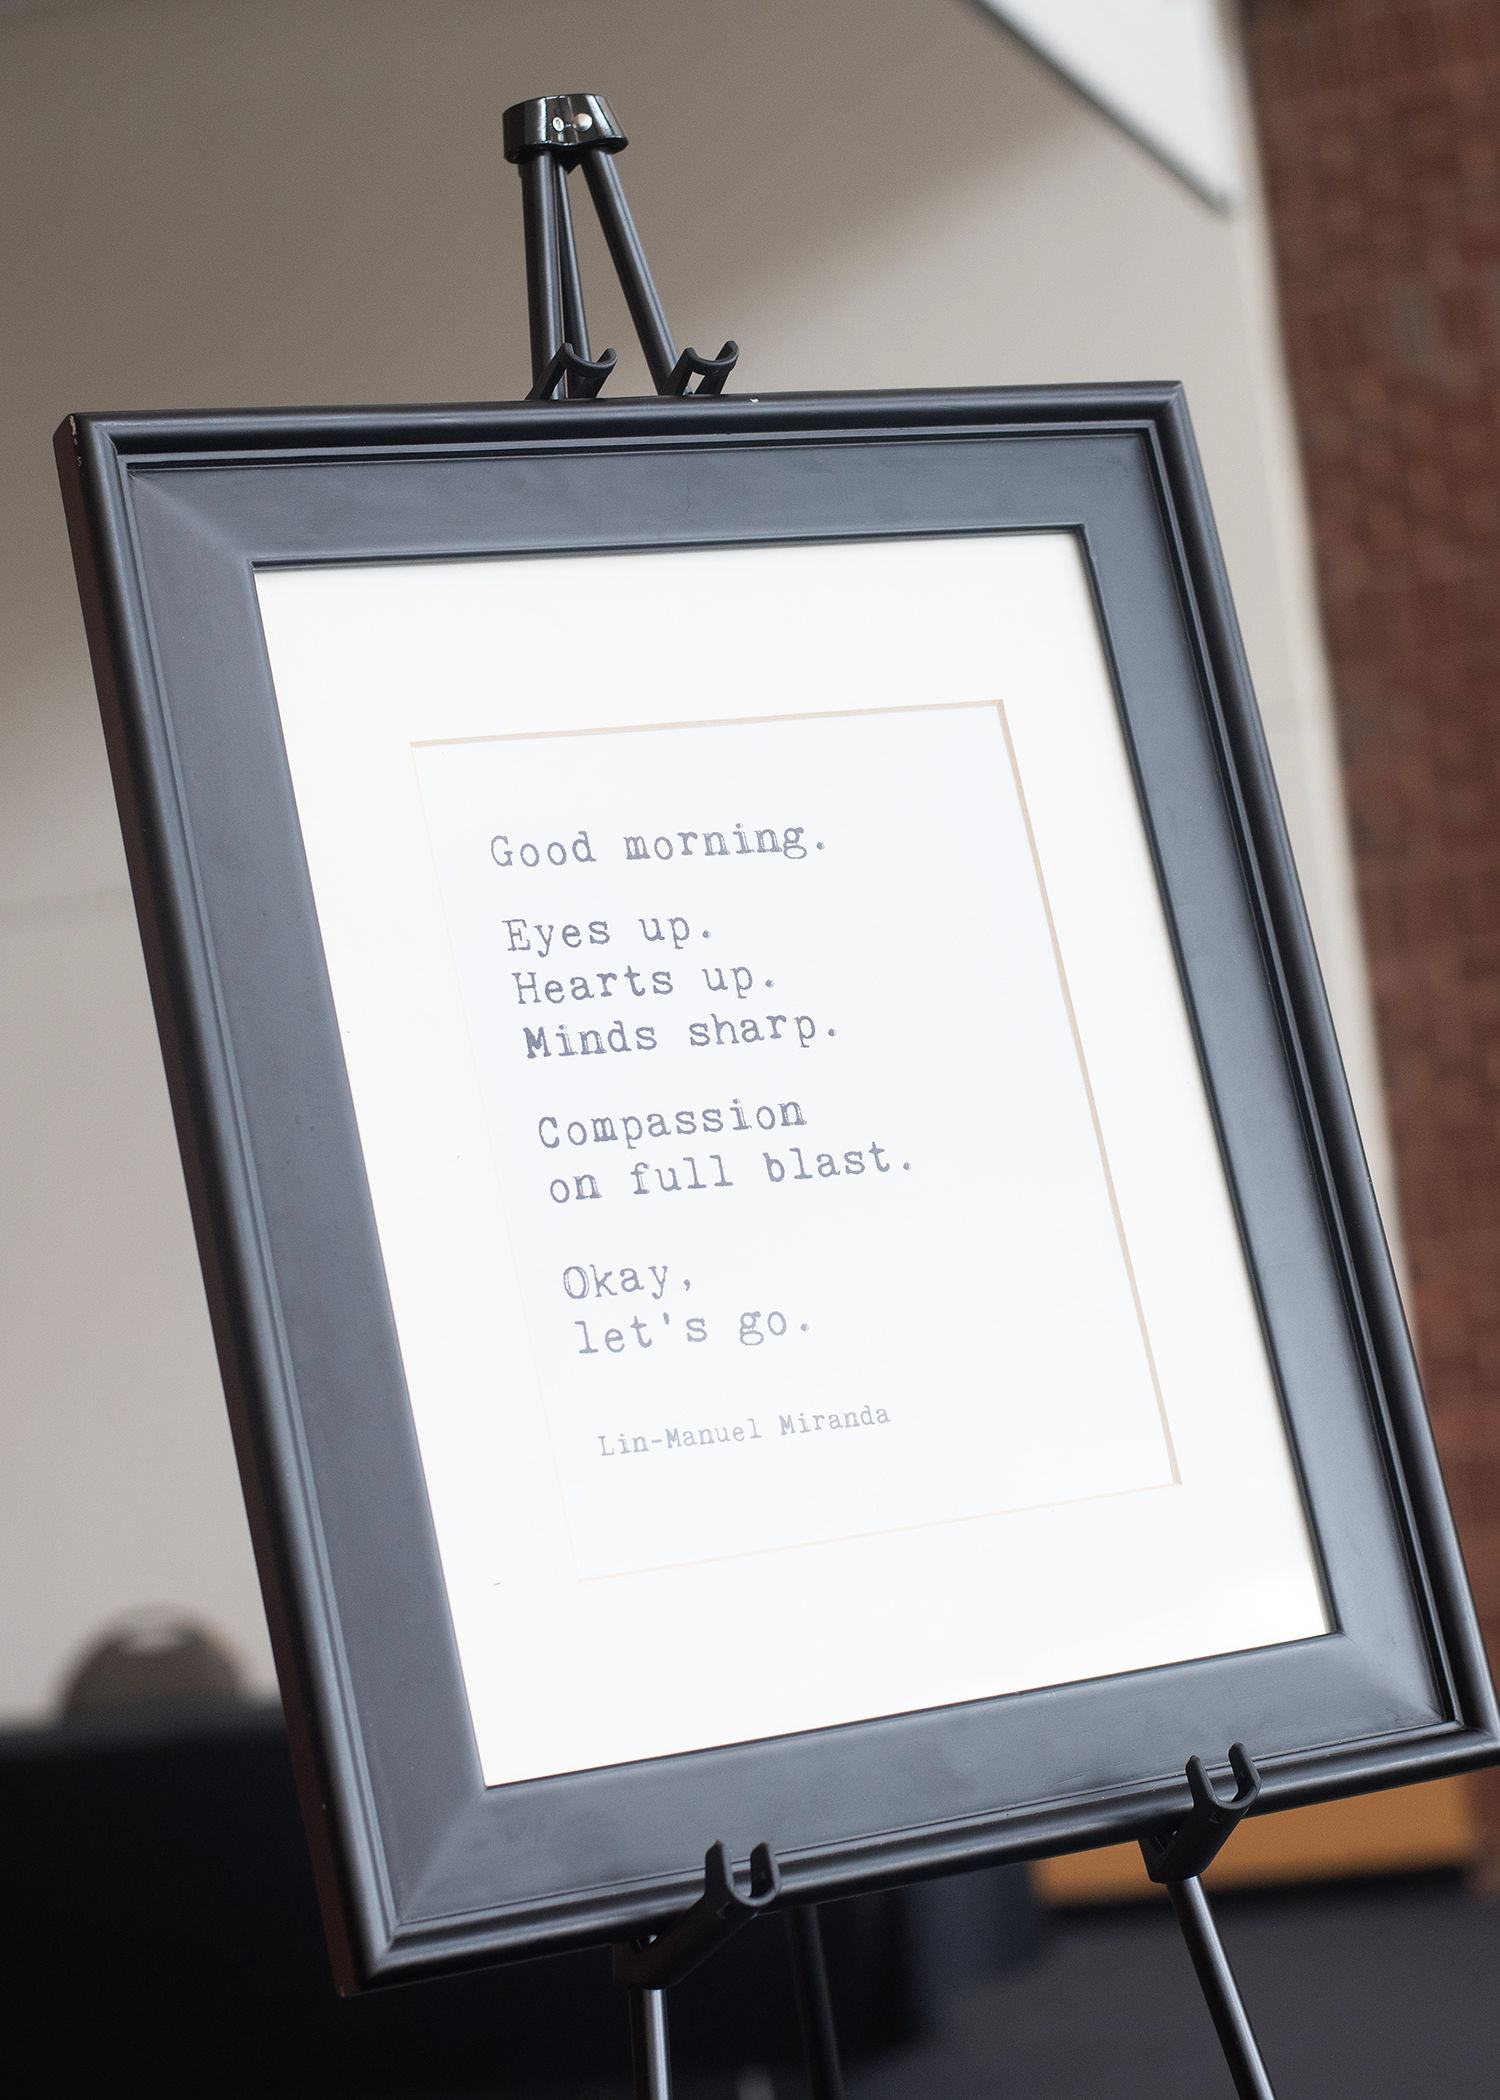 Good morning.
Eyes up.
Hearts up.
Minds sharp.
Compassion
on full blast.
Okay,
let's go.
Lin-Manuel Miranda